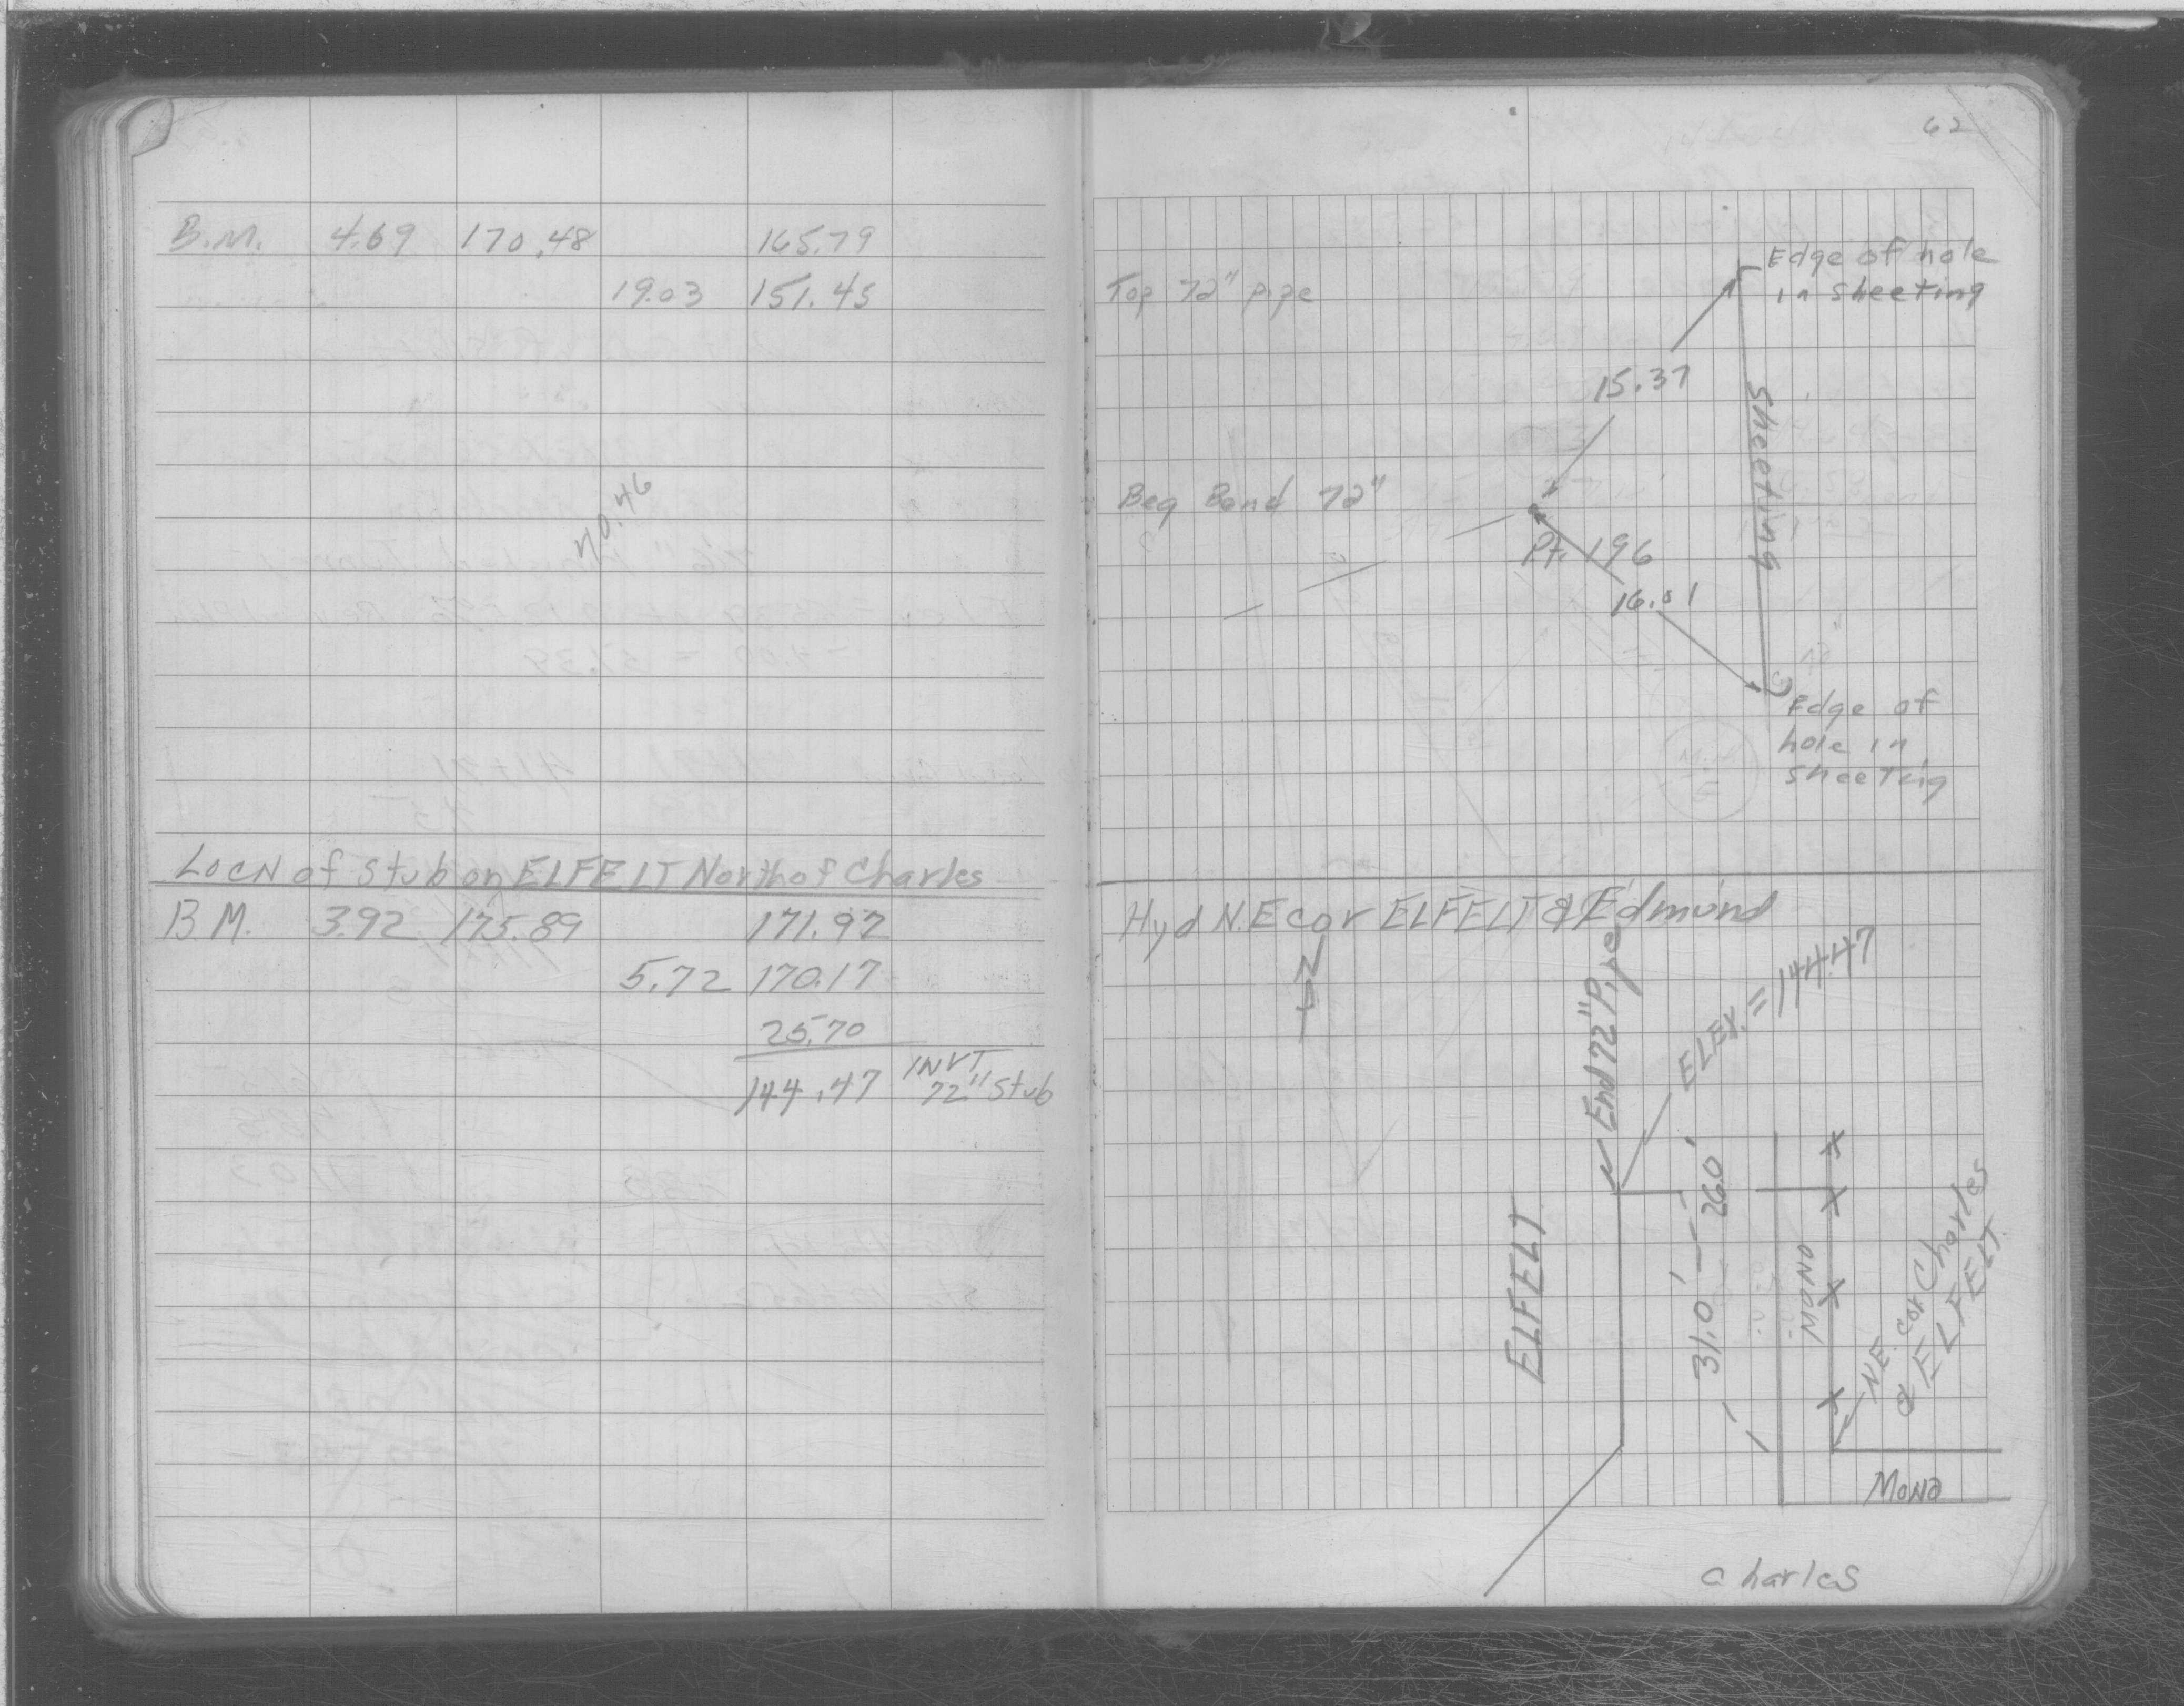 62
B.M. 4.69 170.48 165.79
19.03 151.45
Top 72" pipe
Edge of hole
in sheeting
15.37
Sheeting
Beg Bend 72"
70.46
Pt. 196
16.01
Edge of
hole in
sheeting
LOCN of Stub on ELFELT North of Charles
B.M. 3.92 175.89 171.97
5.72 170.17
25.70
144.47 INVT
72" Stub
Hyd N.E cor ELFELT & Edmund
N
End 72" Pipe
ELEV. = 144.47
26.0'
31.0'
ELFELT
MONO
NE. cor Charles
& ELFELT
MONO
Charles